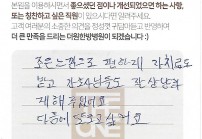 본원을 이용하시면서 좋으셨던 점이나 개선되었으면 하는 사항,
또는 칭찬하고 싶은 직원이 있으시다면 알려주세요.
고객 여러분의 소중한 의견을 정성껏 귀담아듣고 반영하여
더 큰 만족을 드리는 더원한방병원이 되겠습니다 :)
조은느낌으로 편하게 치료도
받고 간호사님들도 잘 상냥하
게 해주었네요
다음에 또 오고 싶네요